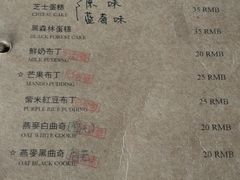 芝士蛋糕
CHEESE CAKE
味
蓝莓味
35 RMB
黑森林蛋糕
BLACK FOREST CAKE
35 RMB
鮮奶布丁
MILK PUDDING
20 RMB
☆ 芒果布丁
MANGO PUDDING
25 RMB
紫米紅豆布丁
PURPLE RICE PUDDING
25 RMB
燕麥白曲奇
OAT WHITE COOKIE
20 RMB
☆ 燕麥黑曲奇
OAT BLACK COOKIE
20 RMB